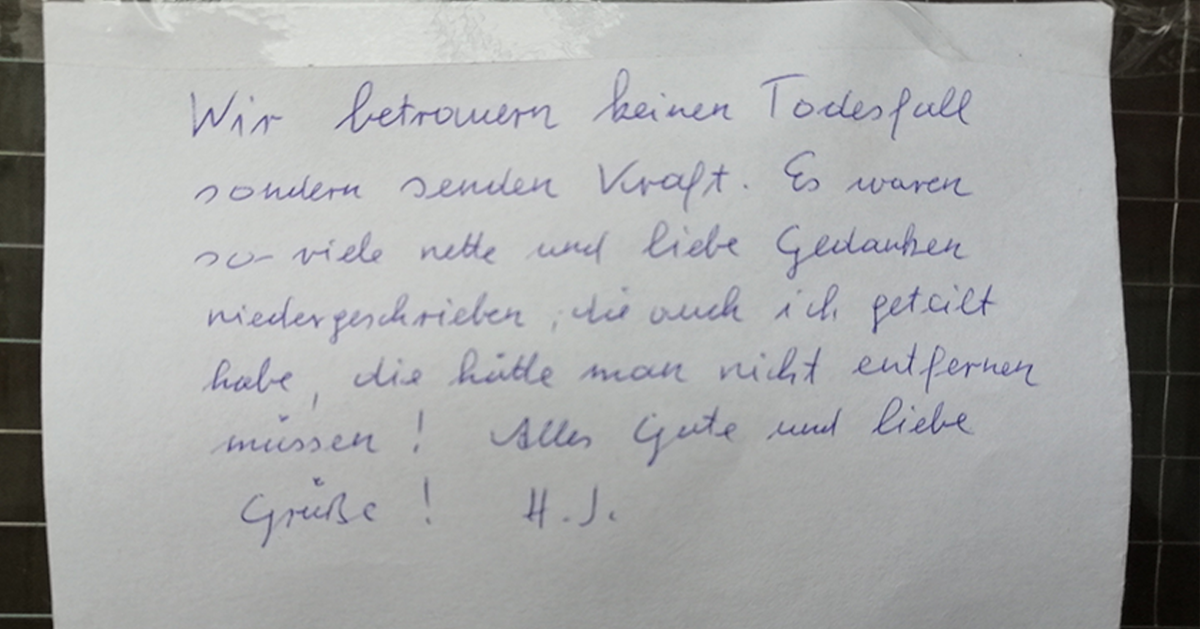 Wir betrauern keinen Todesfall
sondern senden Kraft. Es waren
so viele nette und liebe Gedanken
niedergeschrieben, die auch ich geteilt
habe, die hätte man nicht entfernen
müssen! Alles Gute und liebe
Grüße! H.J.